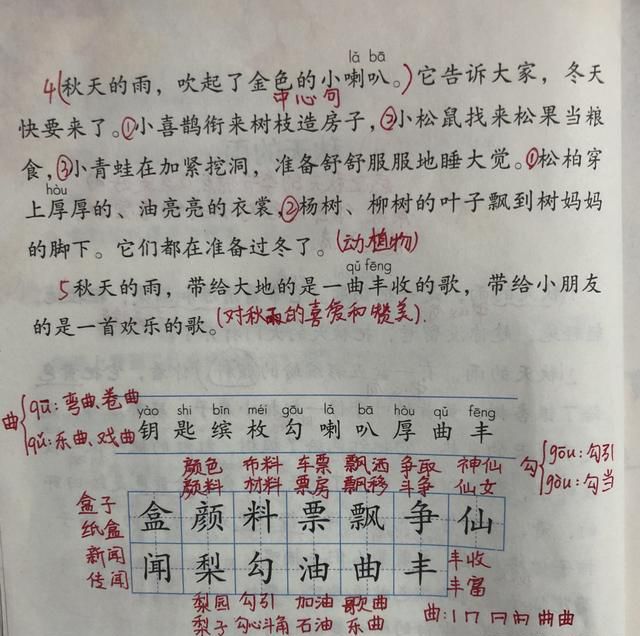 lǎ bā
4(秋天的雨，吹起了金色的小喇叭。)它告诉大家，冬天
中心句
快要来了。①小喜鹊衔来树枝造房子，②小松鼠找来松果当粮
食，③小青蛙在加紧挖洞，准备舒舒服服地睡大觉。①松柏穿
hòu
上厚厚的、油亮亮的衣裳，②杨树、柳树的叶子飘到树妈妈
的脚下。它们都在准备过冬了。(动植物)
qǔ fēng
5秋天的雨，带给大地的是一曲丰收的歌，带给小朋友
的是一首欢乐的歌。(对秋雨的喜爱和赞美).
曲{qū：弯曲、卷曲
qǔ：乐曲、戏曲
yào shi bīn méi gōu lǎ bā hòu qǔ fēng
钥 匙 缤 枚 勾 喇 叭 厚 曲 丰
勾{gōu：勾引
gòu：勾当
颜色 布料 车票 飘洒 争取 神仙
颜料 材料 票房 飘移 斗争 仙女
盒子
纸盒
盒 颜 料 票 飘 争 仙
新闻
传闻
闻 梨 勾 油 曲 丰
丰收
丰富
梨园 勾引 加油 歌曲
梨子 勾心斗角 石油 乐曲
曲：丨 冂 曲 曲